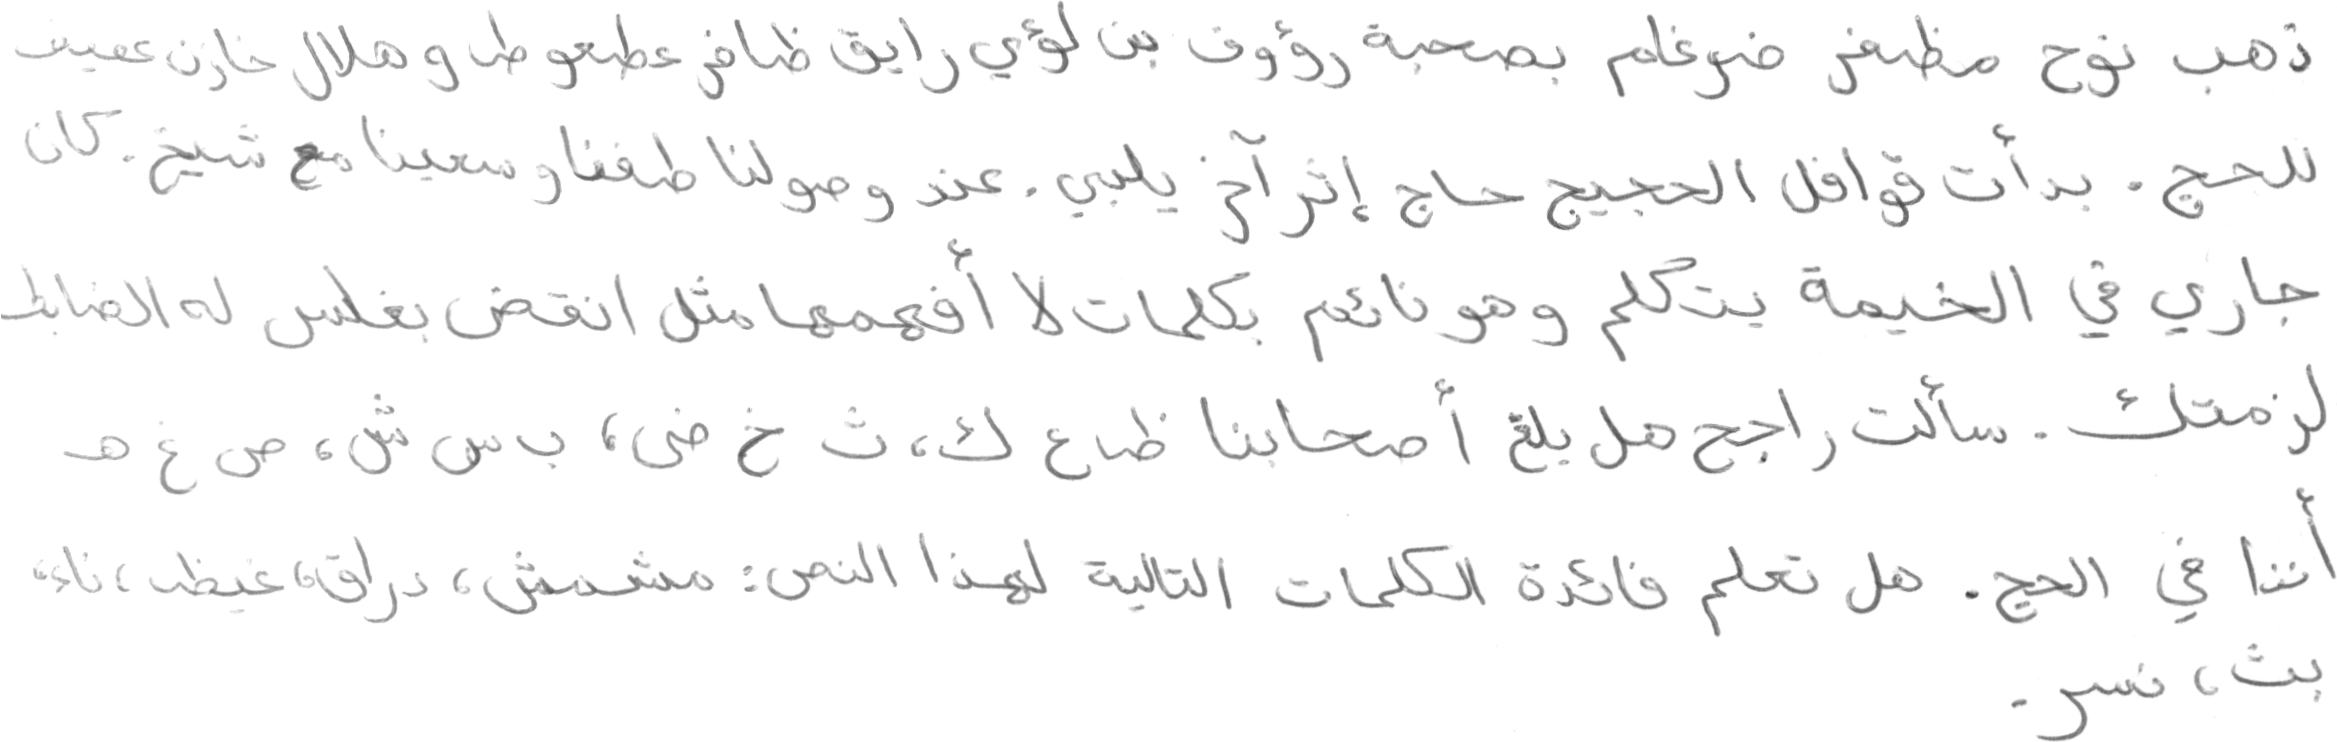 ذهب نوح مظفر ضرغام بصحبة رؤوف بن لؤي رايق ظافر عطعوط و هلال خازن عفيف
للحج. بدأت قوافل الحجيج حاج إثر آخر يلبي. عند وصولنا طفنا وسعينا مع شيخ. كان
جاري في الخيمة يتكلم وهو نائم بكلمات لا أفهمها مثل انقض بغلس له الضابط
لزمتك. سألت راجح هل بلغ أصحابنا ظ اع ك، ث خ ض، ب س ش، ص غ هـ
أننا في الحج. هل تعلم فائدة الكلمات التالية لهذا النص: مشمش، دراق، غيظ، ناء،
بث، نسر.